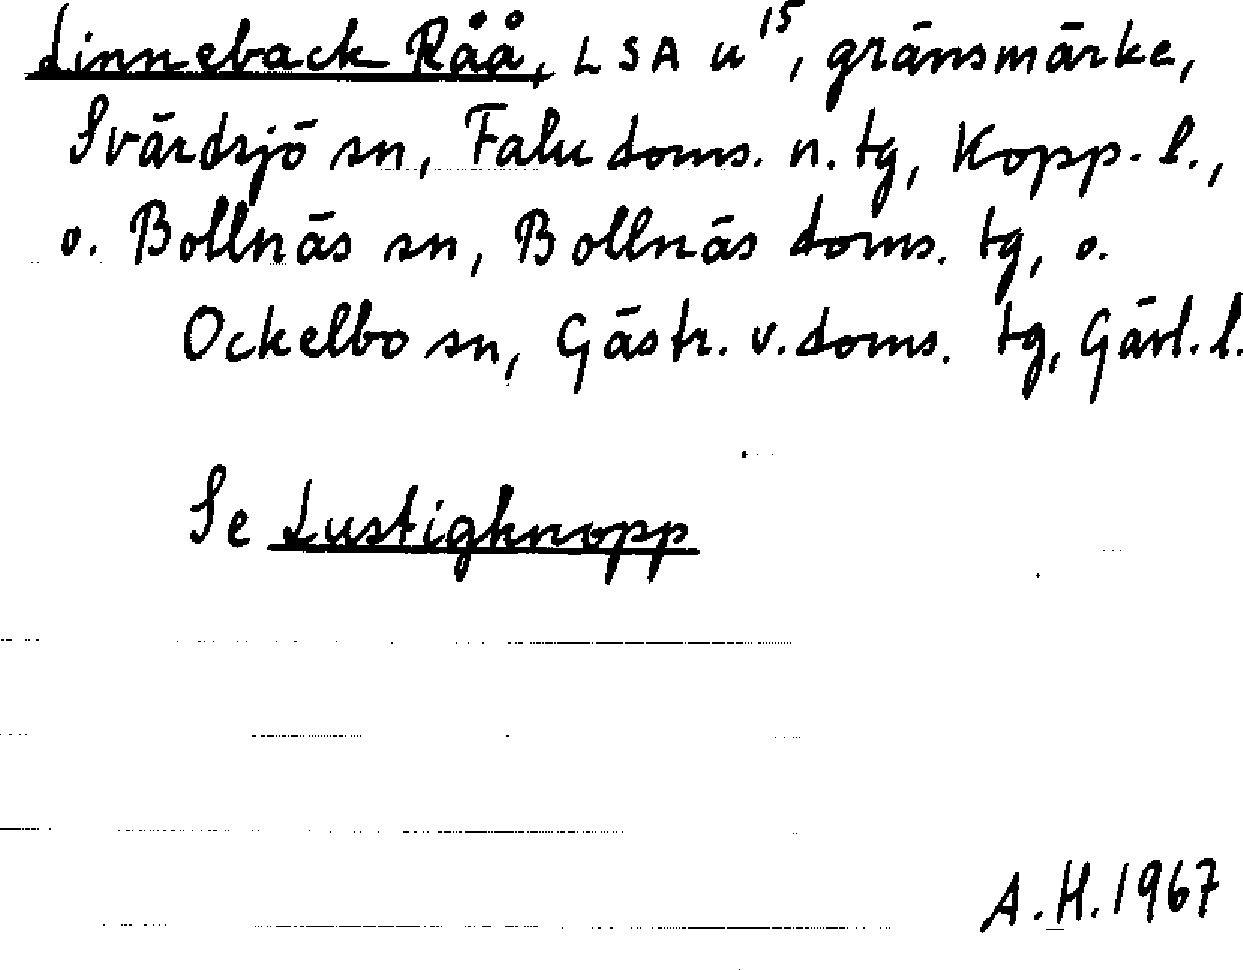 Linneback Råå, LSA u 15, gränsmärke,
Svärdsjö sn, Falu doms. n. tg, Kopp. l.,
o. Bollnäs sn, Bollnäs doms. tg, o.
Ockelbo sn, Gästr. v. doms. tg, Gävl. l.
Se Lustigknopp
A.H. 1967